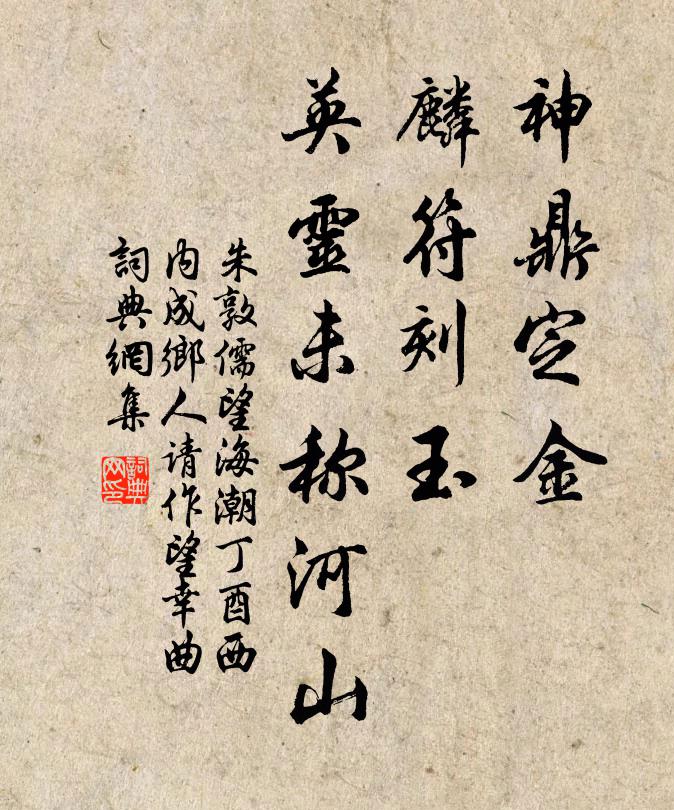 神鼎定金
麟符刻玉
英靈未称河山
朱敦儒望海潮丁酉西
内成鄉人请作望幸曲
詞典網集
詞典网印